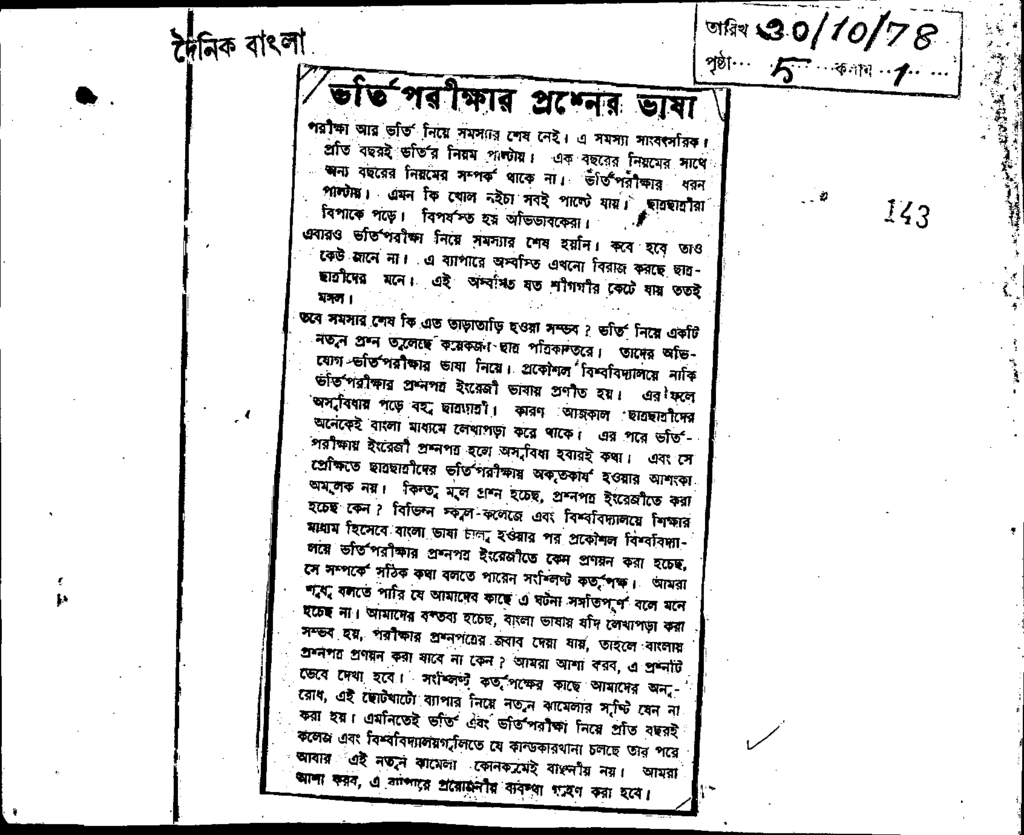 দৈনিক বাংলা
তারিখ 30/10/78
পৃষ্ঠা... 5 ... কলাম .. 1 .. ...
ভর্তি পরীক্ষার প্রশ্নের ভাষা
পরীক্ষা আর ভর্তি নিয়ে সমস্যার শেষ নেই। এ সমস্যা সাংবৎসরিক।
প্রতি বছরই ভর্তির নিয়ম পাল্টায়। এক বছরের নিয়মের সাথে
অন্য বছরের নিয়মের সম্পর্ক থাকে না। ভর্তি পরীক্ষার ধরন
পাল্টায়। এমন কি খোল নইচা সবই পাল্টে যায়। ছাত্রছাত্রীরা
বিপাকে পড়ে। বিপর্যস্ত হয় অভিভাবকেরা।
এবারও ভর্তিপরীক্ষা নিয়ে সমস্যার শেষ হয়নি। কবে হবে তাও
কেউ জানে না। এ ব্যাপারে অস্বস্তি এখনো বিরাজ করছে ছাত্র-
ছাত্রীদের মনে। এই অস্বস্তি যত শীগগীর কেটে যায় ততই
মঙ্গল।
তবে সমস্যার শেষ কি এত তাড়াতাড়ি হওয়া সম্ভব? ভর্তি নিয়ে একটি
নতুন প্রশ্ন তুলেছে কয়েকজন ছাত্র পত্রিকান্তরে। তাদের অভি-
যোগ ভর্তিপরীক্ষার ভাষা নিয়ে। প্রকৌশল বিশ্ববিদ্যালয়ে নাকি
ভর্তিপরীক্ষার প্রশ্নপত্র ইংরেজী ভাষায় প্রণীত হয়। এর ফলে
অসুবিধায় পড়ে বহু ছাত্রছাত্রী। কারণ আজকাল ছাত্রছাত্রীদের
অনেকেই বাংলা মাধ্যমে লেখাপড়া করে থাকে। এর পরে ভর্তি-
পরীক্ষায় ইংরেজী প্রশ্নপত্র হলে অসুবিধা হবারই কথা। এবং সে
প্রেক্ষিতে ছাত্রছাত্রীদের ভর্তি পরীক্ষায় অকৃতকার্য হওয়ার আশংকা
অমূলক নয়। কিন্তু মূল প্রশ্ন হচেছ, প্রশ্নপত্র ইংরেজীতে করা
হচেছ কেন? বিভিন্ন স্কুল-কলেজে এবং বিশ্ববিদ্যালয়ে শিক্ষার
মাধ্যম হিসেবে বাংলা ভাষা চালু হওয়ার পর প্রকৌশল বিশ্ববিদ্যা-
লয়ে ভর্তিপরীক্ষার প্রশ্নপত্র ইংরেজীতে কেন প্রণয়ন করা হচেছ,
সে সম্পর্কে সঠিক কথা বলতে পারেন সংশ্লিষ্ট কর্তৃপক্ষ। আমরা
শুধু বলতে পারি যে আমাদের কাছে এ ঘটনা সঙ্গতিপূর্ণ বলে মনে
হচেছ না। আমাদের বক্তব্য হচেছ, বাংলা ভাষায় যদি লেখাপড়া করা
সম্ভব হয়, পরীক্ষার প্রশ্নপত্রের জবাব দেয়া যায়, তাহলে বাংলায়
প্রশ্নপত্র প্রণয়ন করা যাবে না কেন? আমরা আশা করব, এ প্রশ্নটি
ভেবে দেখা হবে। সংশ্লিষ্ট কর্তৃপক্ষের কাছে আমাদের অনু-
রোধ, এই ছোটখাটো ব্যাপার নিয়ে নতুন ঝামেলার সৃষ্টি যেন না
করা হয়। এমনিতেই ভর্তি এবং ভর্তিপরীক্ষা নিয়ে প্রতি বছরই
কলেজ এবং বিশ্ববিদ্যালয়গুলিতে যে কান্ডকারখানা চলছে তার পরে
আবার এই নতুন ঝামেলা কোনক্রমেই বাঞ্ছনীয় নয়। আমরা
আশা করব, এ ব্যাপারে প্রয়োজনীয় ব্যবস্থা গ্রহণ করা হবে।
143